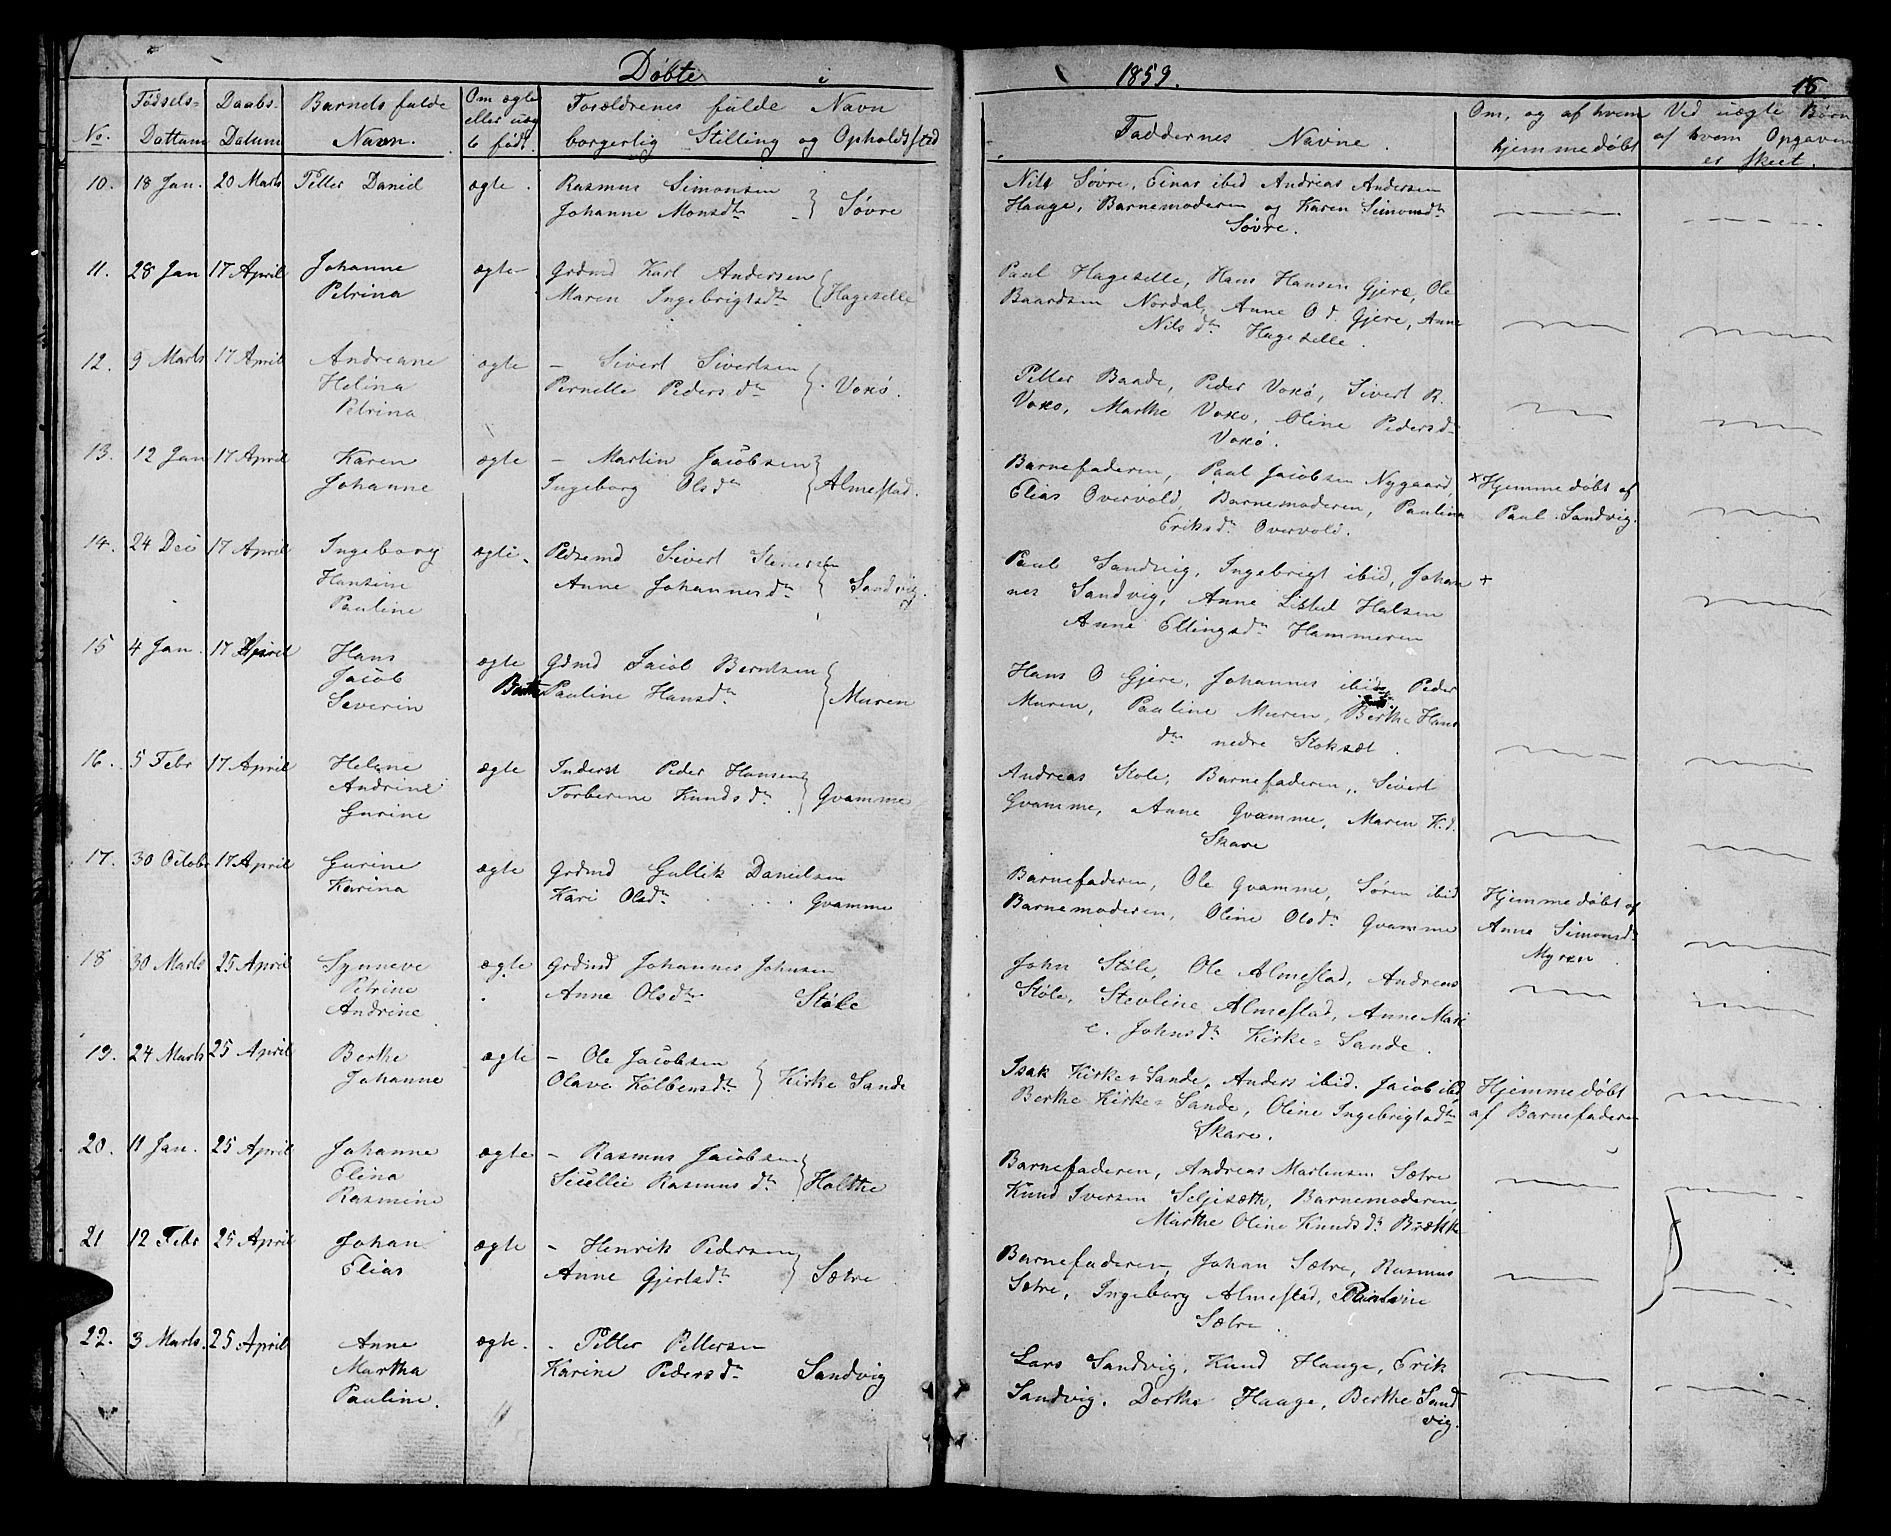 Døbte i 1859. 15
No. Fødsels- Dattum Daabs. Datum Barnets fulde Navn. Om ægte eller uæg te født. Forældrenes fulde Navn borgerlig Stilling og Opholdssted Faddernes Navne. Om, og af hvem hjemmedøbt Ved uægte Børn af hvem Opgaven er skeet.
10. 18 Jan. 20 Marts Petter Daniel ægte. Rasmus Simonsen
Johanne Monsdtr } Søvre
Nils Søvre, Einar ibid Andreas Andersen
Hauge, Barnemoderen og Karen Simonsdtr
Søvre.
11. 28 Jan 17 April Johanne
Petrina
ægte- Grdmd Karl Andersen
Maren Ingebrigtsdtr { Hageselle
Paul Hageselle, Hans Hansen Gjere, Ole
Baardsen Nordal, Anne O d. Gjere, Anne
Nils dtr Hageselle.
12. 9 Marts 17 April Andreane
Helina
Petrina
ægte - Sivert Sivertsen
Pernelle Pedersdtr { Voxø.
Petter Baade, Peder Voxø, Sivert R.
Voxo, Marthe Voxo, Oline Pedersdtr
Voxø.
13. 12 Jan 17 April Karen
Johanne
ægte - Martin Jacobsen
Ingeborg Olsdtr } Almestad.
Barnefaderen, Paul Jacobsen Nygaard,
Elias Overvold, Barnemoderen, Paulina
Eriksdtr Overvold.
x Hjemmedøbt af
Paul Sandvig.
14. 24 Dec 17 April Ingeborg
Hansine
Pauline
ægte. Sivert
Anne Johannesdtr } Sandvig.
Paul Sandvig, Ingebrigt ibid, Johan +
nes Sandvig, Anne Halsen
Anne Ellingsdtr Hammeren
15 4 Jan. 17 April Hans
Jacob
Severin
ægte Gdmd Jacob Berntsen
Pauline Hansdtr { Muren
Hans O Gjere, Johannes ibid, Peder
Muren, Pauline Muren, Berthe Hans
dtr nedre Stoksæt.
16. 5 Febr 17 April Helene
Andrine
Gurine
ægte Inderst Peder Hansen
Torberine Knudsdtr } Gvamme
Andreas Støle, Barnefaderen, Sivert
Gvamme, Anne Gvamme, Maren K.d.
Skare
17. 30 Octobr 17 April Gurine
Karina
ægte Grdmd Gullik Danielsen
Kari Olsdtr . . . . Gvamme
Barnefaderen, Ole Gvamme, Søren ibid
Barnemoderen, Oline Olsdtr Gvamme
Hjemmedøbt af
Anne Simonsdtr
Myren
18 30 Marts 25 April Synneve
Petrine
Andrine
ægte Grdmd Johannes Johnsen
Anne Olsdtr Støle
John Støle, Ole Almestad, Andreas
Støle, Stevline Almestad, Anne Mari
e. Johnsdtr Kirke=Sande.
19. 24 Marts 25 April Berthe
Johanne
ægte - Ole Jacobsen
Olave Kolbensdtr } Kirke Sande
Isak Kirke=Sande, Anders ibid. Jacob ibid
Berthe Kirke=Sande, Oline Ingebrigtsdtr
Skare.
Hjemmedøbt
af Barnefaderen
20. 11 Jan. 25 April Johanne
Elina
Rasmine
ægte - Rasmus Jacobsen
Rasmusdtr } Holthe
Barnefaderen, Andreas Martensen Sætre
Knud Iversen Seljesæth, Barnemoderen,
Marthe Oline Knudsdtr Brække
21 12 Febr 25 April Johan
Elias
ægte - Henrik Pedersen
Anne Gjertsdtr } Sætre
Barnefaderen, Johan Sætre, Rasmus
Sætre, Ingeborg Almestad, Pauline
Sætre.
22. 3 Marts. 25 April Anne
Martha
Pauline.
ægte. - Petter Pettersen
Karine Pedersdtr Sandvig
Lars Sandvig, Knud Hauge, Erik
Sandvig. Dorthe Hauge, Berthe Sand
vig.